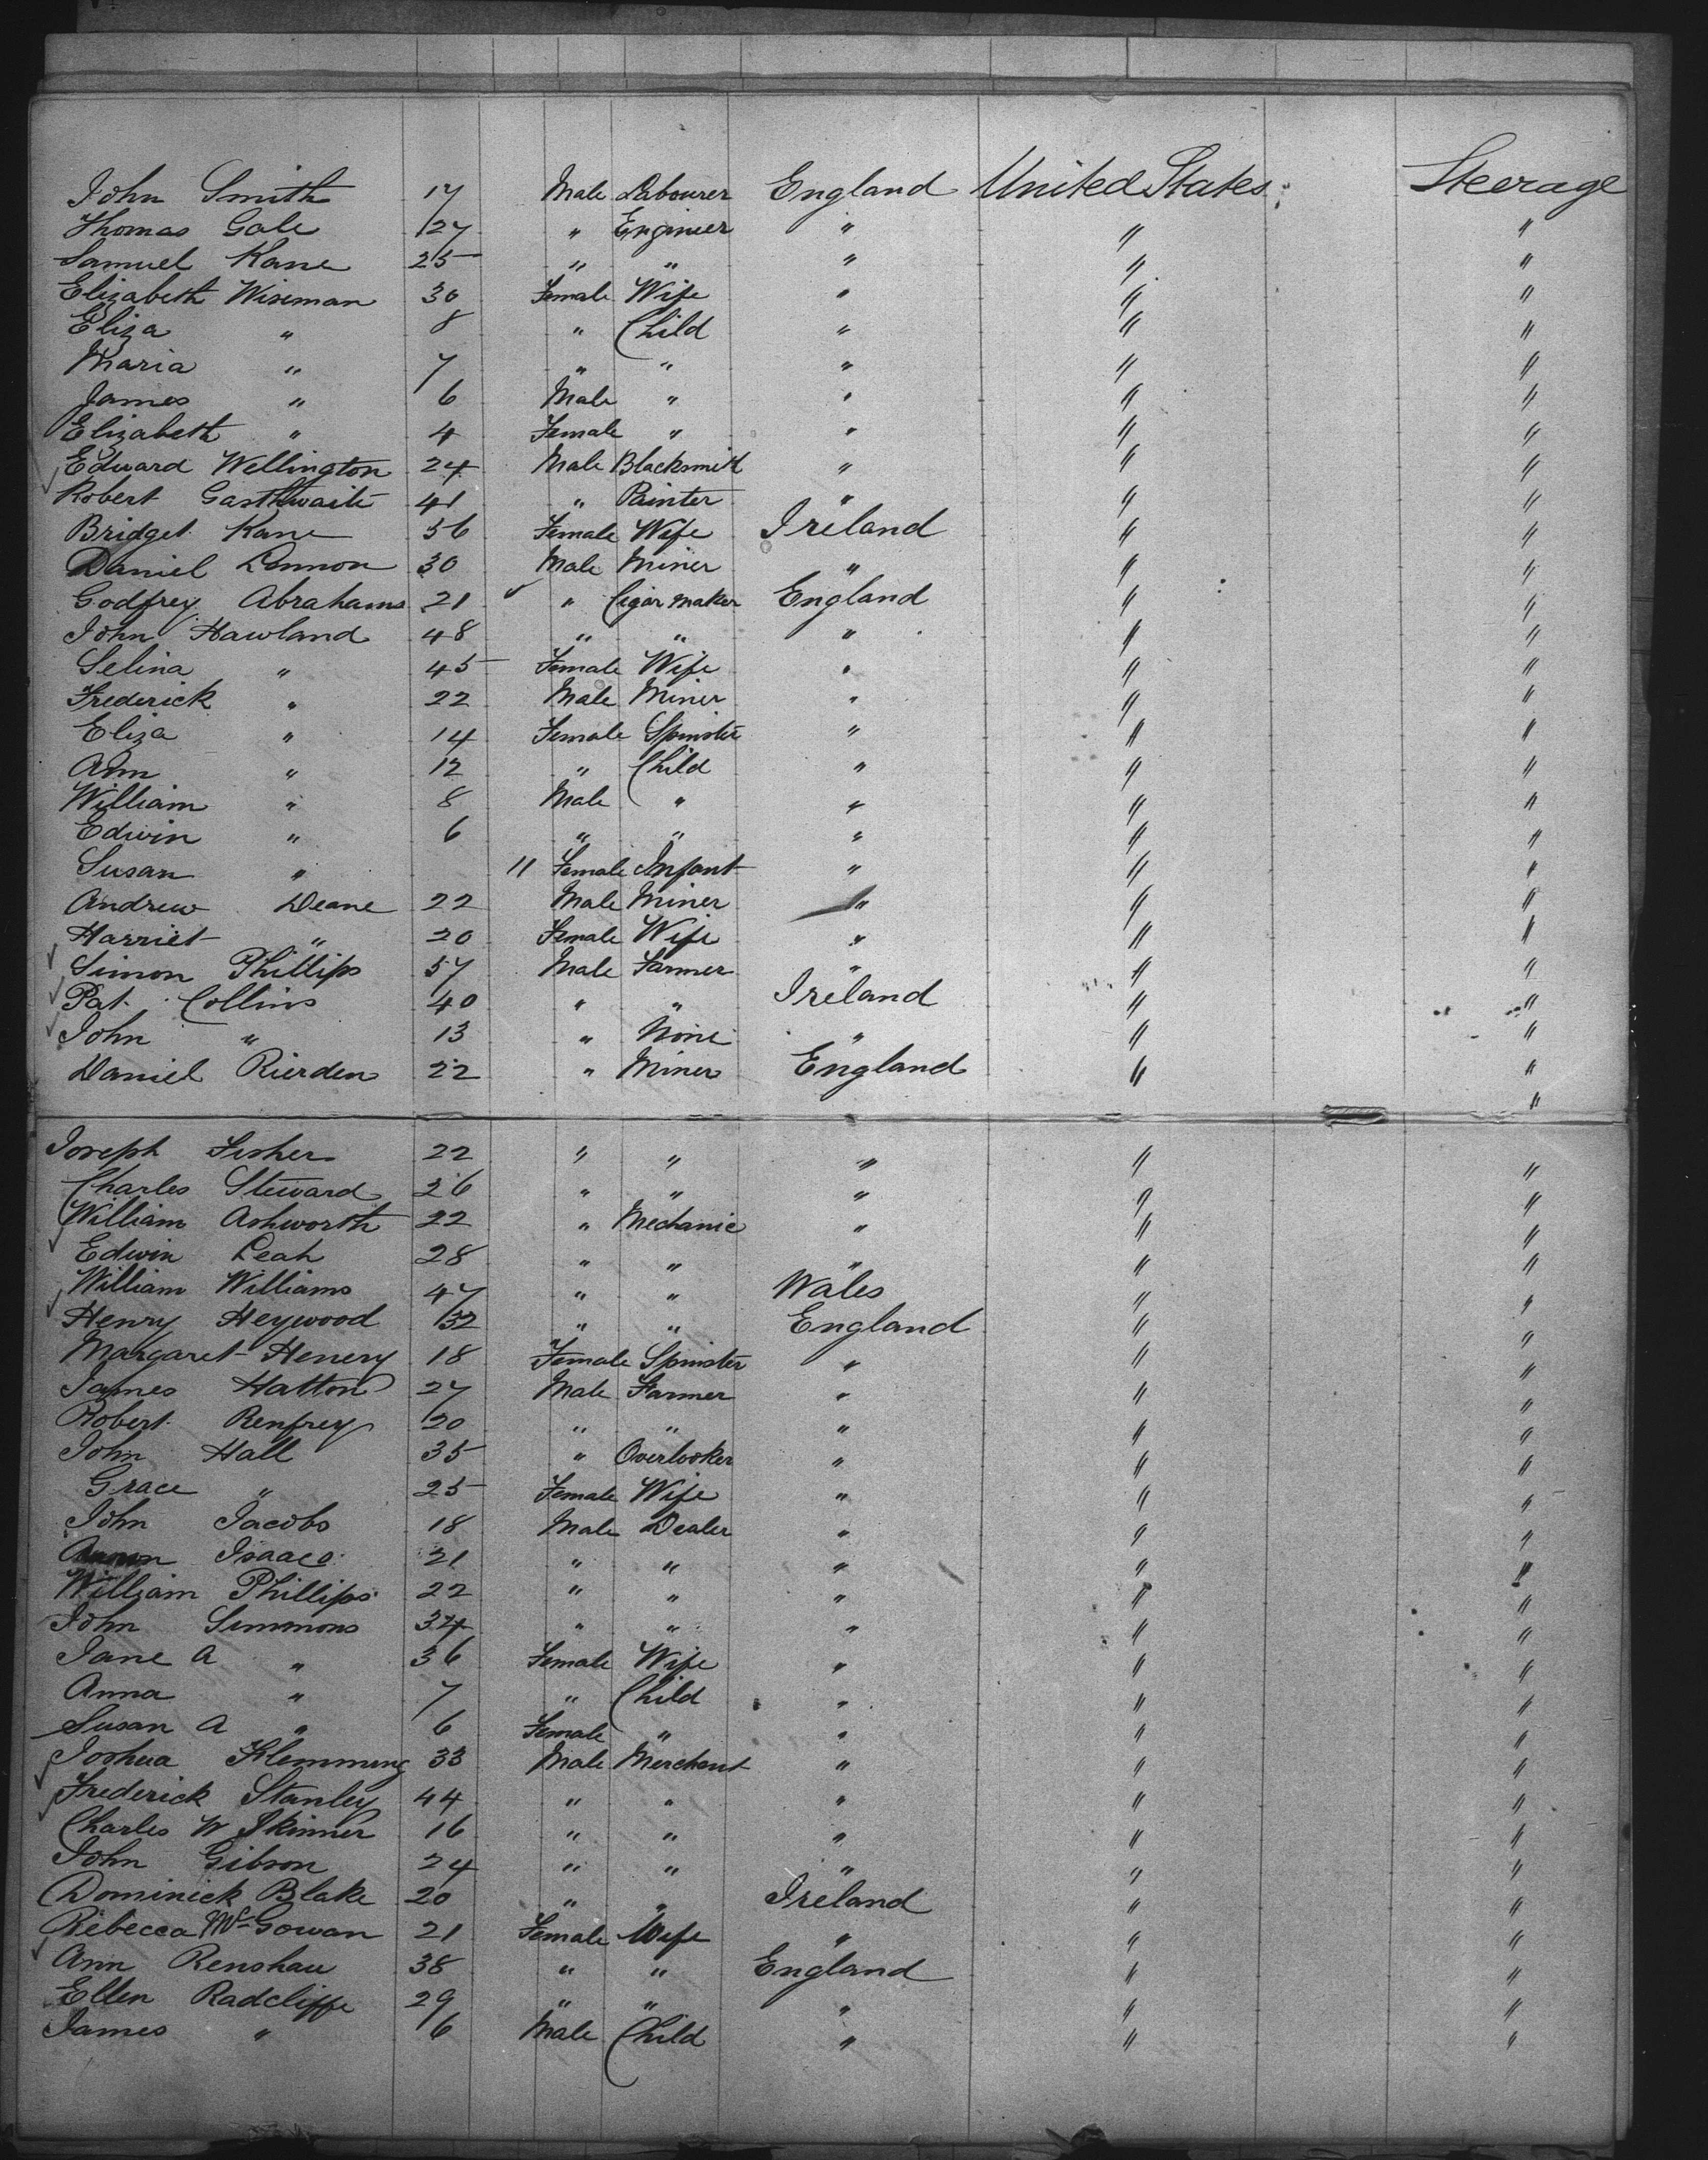 John Smith 17 Male Labourer England United States Steerage
Thomas Gale 27 " Enginier " " "
Samuel Kane 25 " " " " "
Elizabeth Wiseman 30 Female Wife " " "
Eliza " 8 " Child " " "
Maria " 7 " " " " "
James " 6 Male " " " "
Elizabeth " 4 Female " " " "
Edward Wellington 24 Male Blacksmith " " "
Robert Garthwaite 41 " Painter " " "
Bridget Kane 36 Female Wife Ireland " "
Daniel Lennon 30 Male Miner " " "
Godfrey Abrahams 21 " Cigar maker England " "
John Hawland 48 " " " " "
Selina " 45 Female Wife " " "
Frederick " 22 Male Miner " " "
Eliza " 14 Female Spinster " " "
Ann " 12 " Child " " "
William " 8 Male " " " "
Edwin " 6 " " " " "
Susan " 11 Female Infant " " "
Andrew Deane 22 Male Miner " " "
Harriet " 20 Female Wife " " "
Simon Phillips 57 Male Farmer " " "
Pat. Collins 40 " " Ireland " "
John " 13 " None " " "
Daniel Rierden 22 " Miner England " "
"
Joseph Fisher 22 " " " " "
Charles Steward 26 " " " " "
William Ashworth 22 " Mechanic " " "
Edwin Leah 28 " " " " "
William Williams 47 " " Wales " "
Henry Heywood 32 " " England " "
Margaret Henery 18 Female Spinster " " "
James Hatton 27 Male Farmer " " "
Robert Renfrey 20 " " " " "
John Hall 35 " Overlooker " " "
Grace " 25 Female Wife " " "
John Jacobs 18 Male Dealer " " "
Isaacs 21 " " " " "
William Phillips 22 " " " " "
John Simmons 34 " " " " "
Jane A " 36 Female Wife " " "
Anna " 7 " Child " " "
Susan A " 6 Female " " " "
Joshua Klemming 33 Male Merchant " " "
Frederick Stanley 44 " " " " "
Charles W Skinner 16 " " " " "
John Gibson 24 " " " " "
Dominick Blake 20 " " Ireland " "
Rebecca McGowan 21 Female Wife " " "
Ann Renshaw 38 " " England " "
Ellen Radcliffe 29 " " " " "
James " 6 Male Child " " "